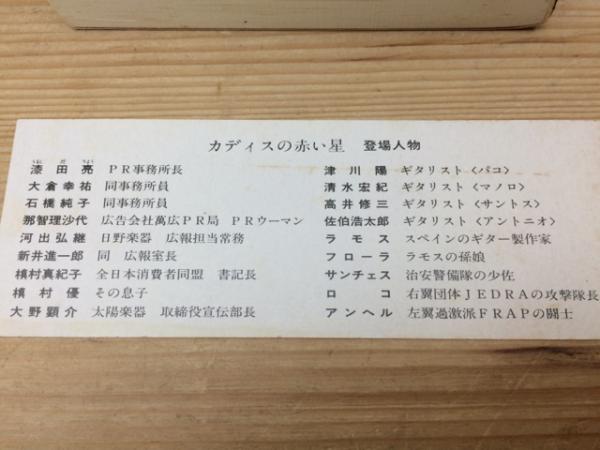 カディスの赤い星 登場人物
漆田亮 PR事務所長
大倉幸祐 同事務所員
石橋純子 同事務所員
那智理沙代 広告会社萬広PR局 PRウーマン
河出弘継 日野楽器 広報担当常務
新井進一郎 同 広報室長
槙村真紀子 全日本消費者同盟 書記長
槙村優 その息子
大野顕介 太陽楽器 取締役宣伝部長
津川陽 ギタリスト〈パコ〉
清水宏紀 ギタリスト〈マノロ〉
高井修三 ギタリスト〈サントス〉
佐伯浩太郎 ギタリスト〈アントニオ〉
ラモス スペインのギター製作家
フローラ ラモスの孫娘
サンチェス 治安警備隊の少佐
ロコ 右翼団体JEDRAの攻撃隊長
アンヘル 左翼過激派FRAPの闘士